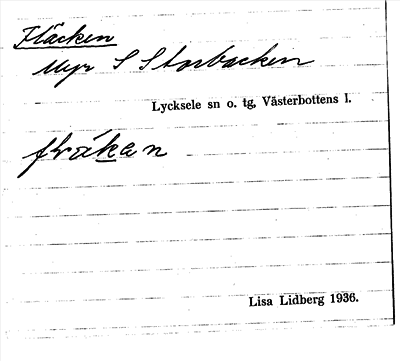 Fläcken
Myr S Storbacken
Lycksele sn o. tg, Västerbottens l.
Lisa Lidberg 1936.